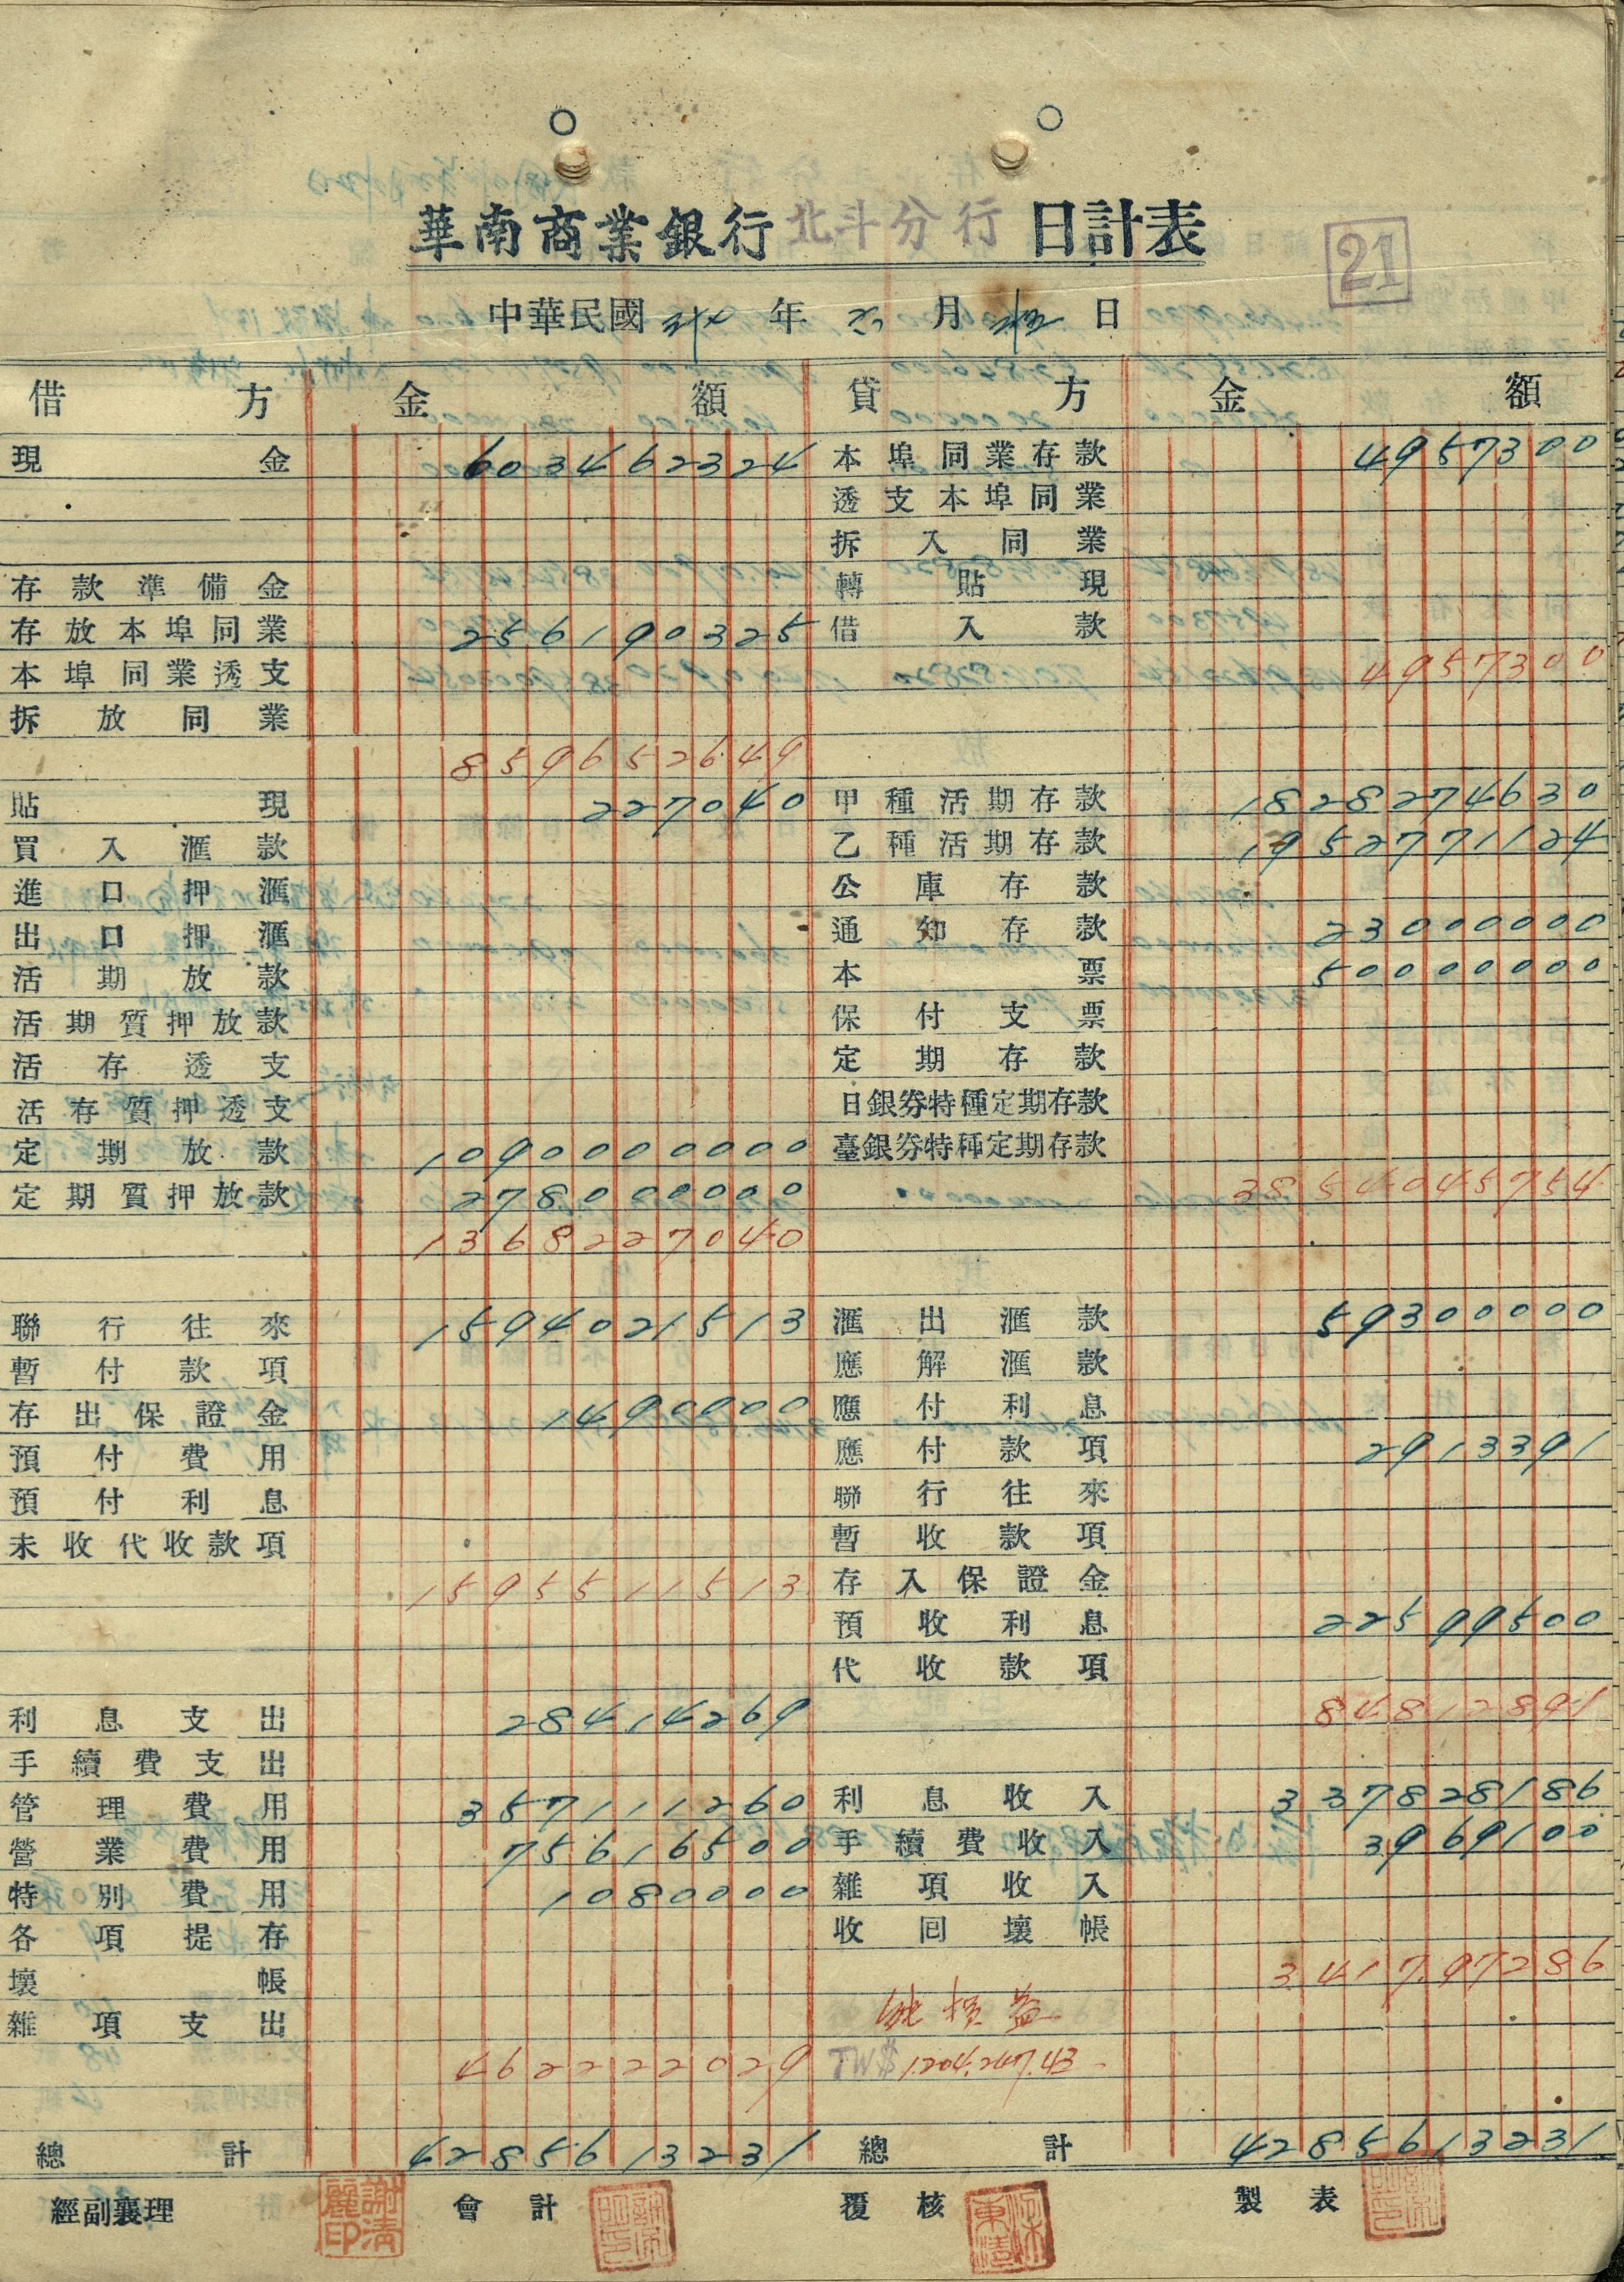 華南商業銀行 北斗分行 日計表
21
中華民國 年 六 月 日
借方 金額 貸方 金額
現金 6034462324 本埠同業存款 49557300
透支本埠同業
拆入同業
存款準備金 轉貼現
存放本埠同業 2561190325 借入款
本埠同業透支 49557300
拆放同業
8596652649
貼現 2227040 甲種活期存款 18282774630
買入滙款 乙種活期存款 19527771124
進口押滙 公庫存款
出口押滙 通知存款 230000000
活期放款 本票 500000000
活期質押放款 保付支票
活存透支 定期存款
活存質押透支 日銀券特種定期存款
定期放款 10900000000 臺銀券特種定期存款
定期質押放款 2780000000 38540545754
13682227040
聯行往來 15940021513 滙出滙款 593000000
暫付款項 應解滙款
存出保證金 14900000 應付利息
預付費用 應付款項 29133391
預付利息 聯行往來
未收代收款項 暫收款項
15955511513 存入保證金
預收利息 225995500
代收款項
利息支出 284414269 848128891
手續費支出
管理費用 3571111260 利息收入 3378281866
營業費用 756616500 手續費收入 39691000
特別費用 10800000 雜項收入
各項提存 收囘壞帳
壞帳 3417972866
雜項支出 純損益
4622222029 TW$1.204.247.43-
總計 42856132311 總計 42856132311
經副襄理 謝清麗印 會計 覆核 製表